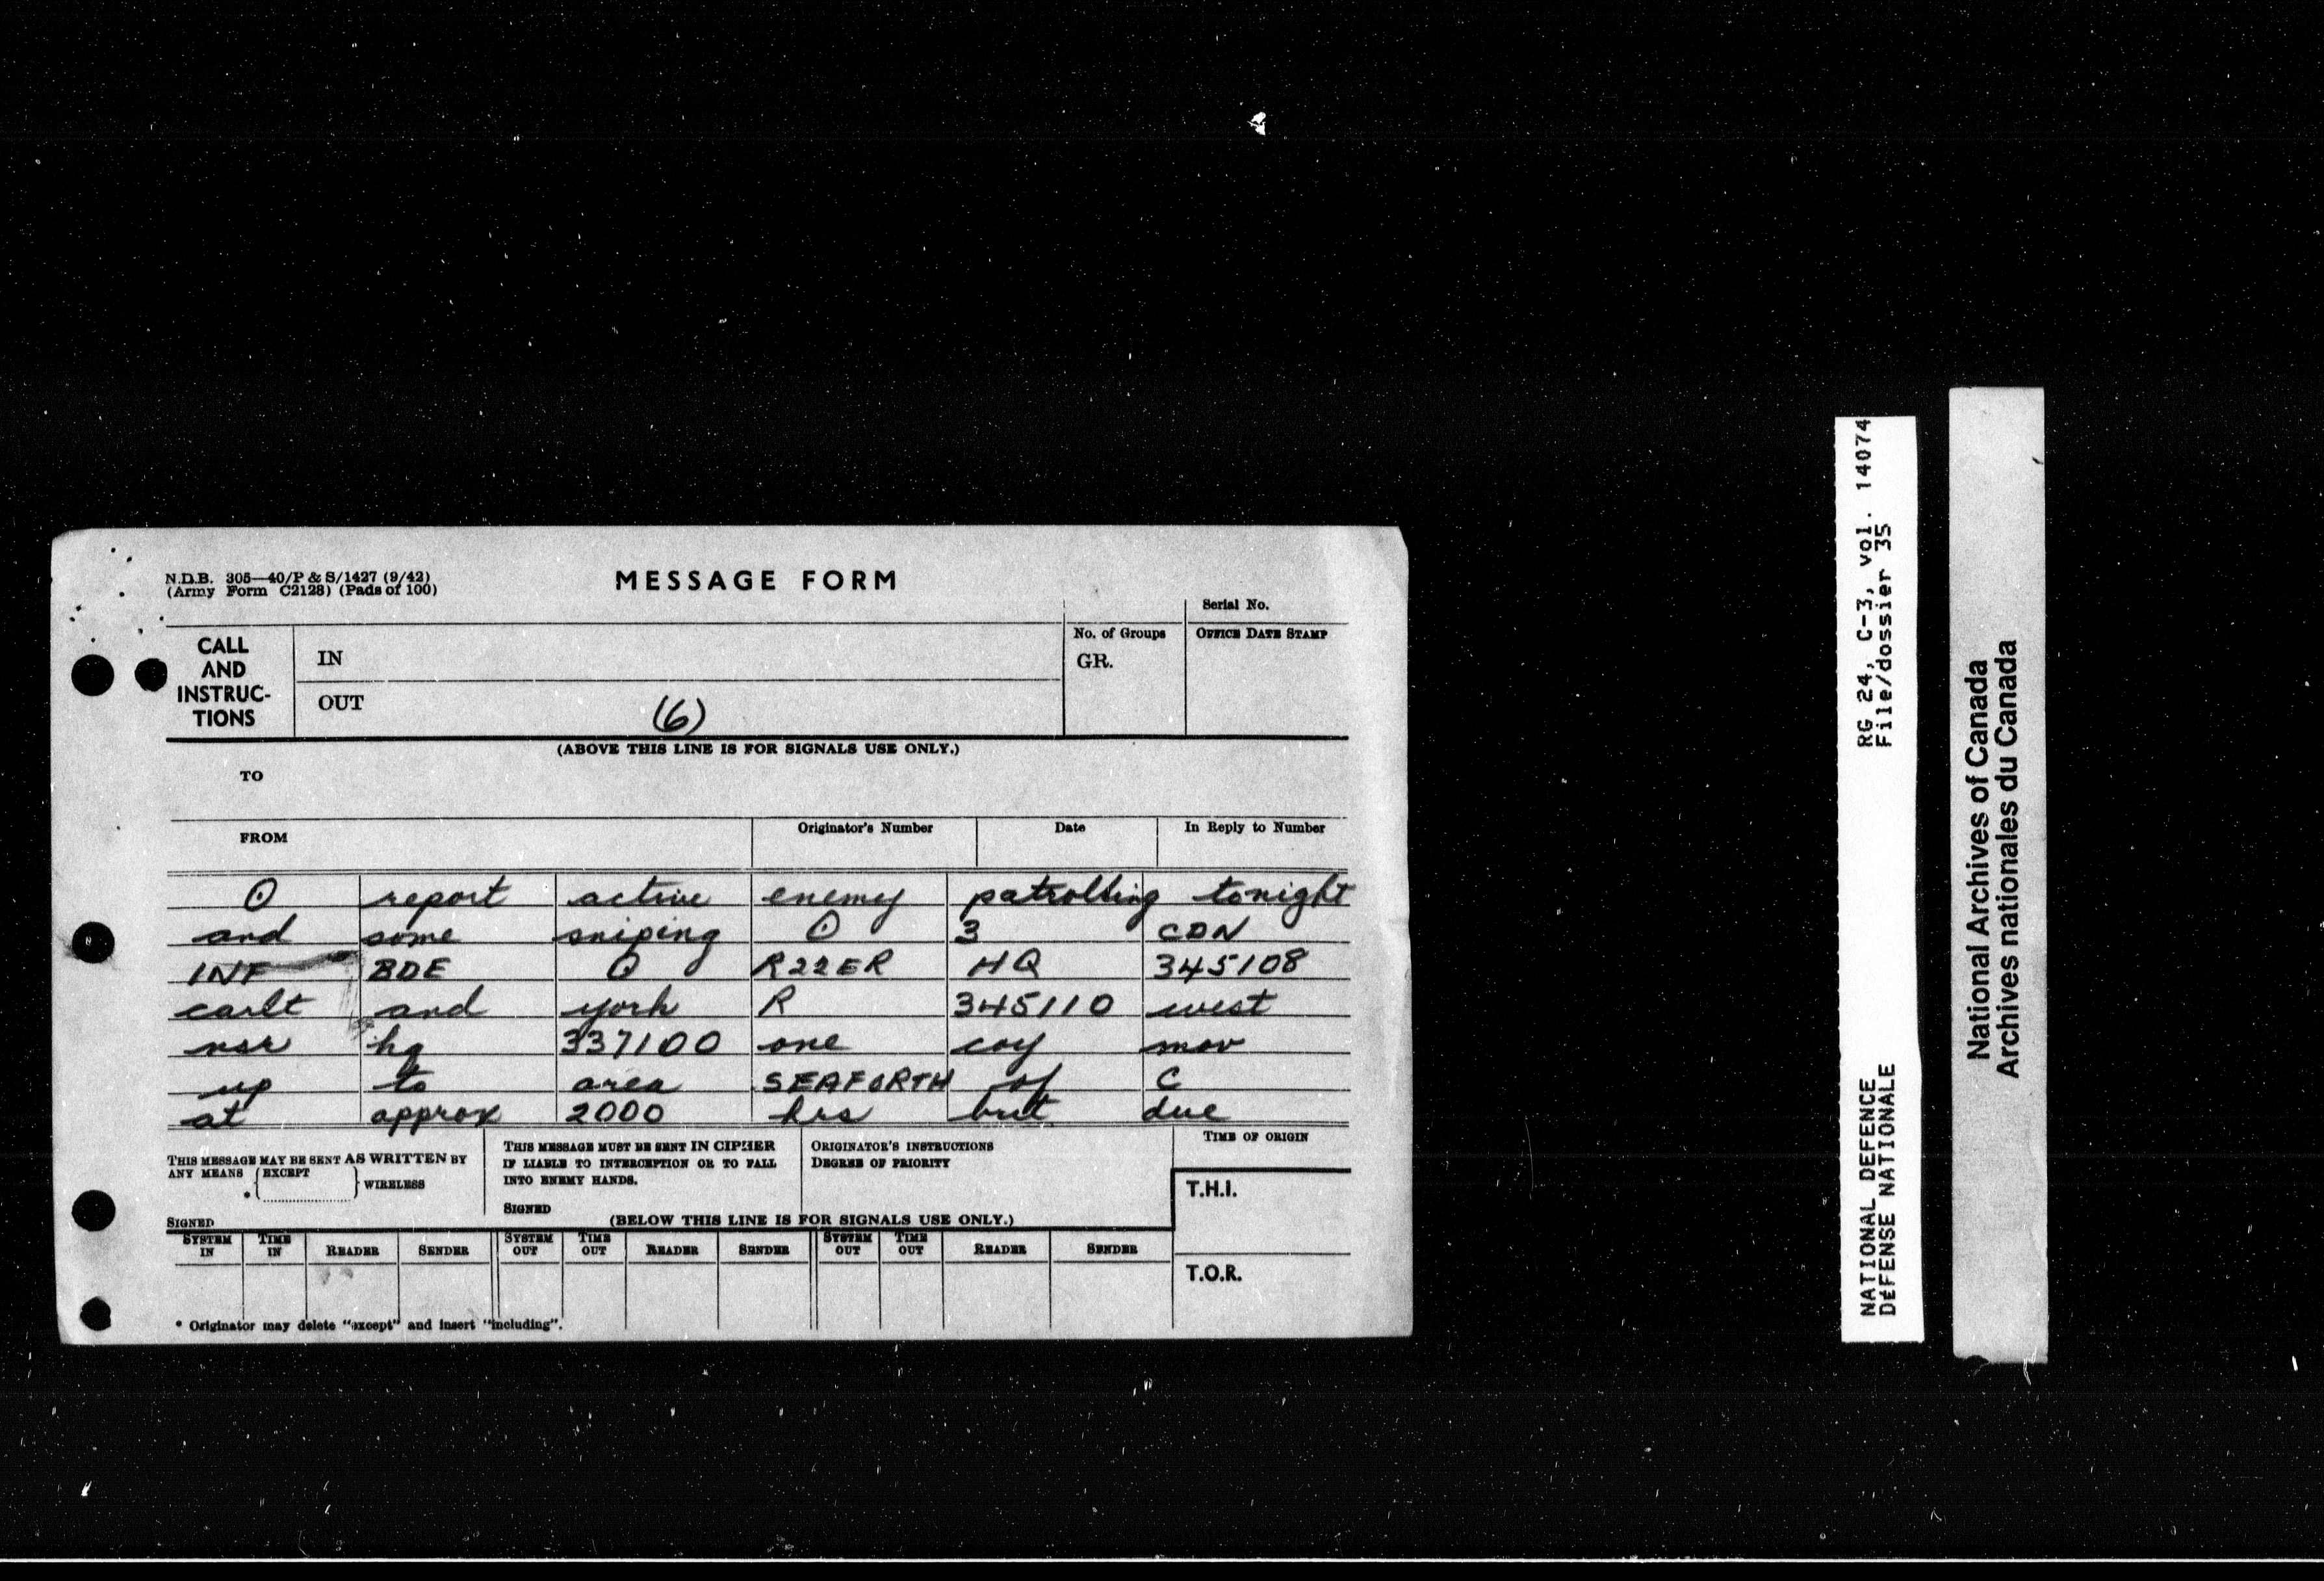 N.D.B. 305—40/P & S/1427 (9/42)
(Army Form C2128) (Pads of 100)
MESSAGE FORM
Serial No.
CALL AND INSTRUC-TIONS
IN
OUT
(6)
No. of Groups
GR.
OFFICE DATE STAMP
(ABOVE THIS LINE IS FOR SIGNALS USE ONLY.)
TO
FROM
Originator's Number
Date
In Reply to Number
⊙ report active enemy patrolling tonight
and some sniping ⊙ 3 CDN
INF BDE ⊙ R22ER HQ 345108
carlt and york R 345110 west
nsr hq 337100 one coy mov
up to area SEAFORTH of C
at approx 2000 hrs but due
THIS MESSAGE MAY BE SENT AS WRITTEN BY
ANY MEANS
EXCEPT
*
WIRELESS
SIGNED
THIS MESSAGE MUST BE SENT IN CIPHER
IF LIABLE TO INTERCEPTION OR TO FALL
INTO ENEMY HANDS.
SIGNED
ORIGINATOR'S INSTRUCTIONS
DEGREE OF PRIORITY
TIME OF ORIGIN
T.H.I.
T.O.R.
(BELOW THIS LINE IS FOR SIGNALS USE ONLY.)
SYSTEM IN TIME IN READER SENDER SYSTEM OUT TIME OUT READER SENDER SYSTEM OUT TIME OUT READER SENDER
* Originator may delete "except" and insert "including".
RG 24, C-3, vol. 14074
File/dossier 35
NATIONAL DEFENCE
DÉFENSE NATIONALE
National Archives of Canada
Archives nationales du Canada